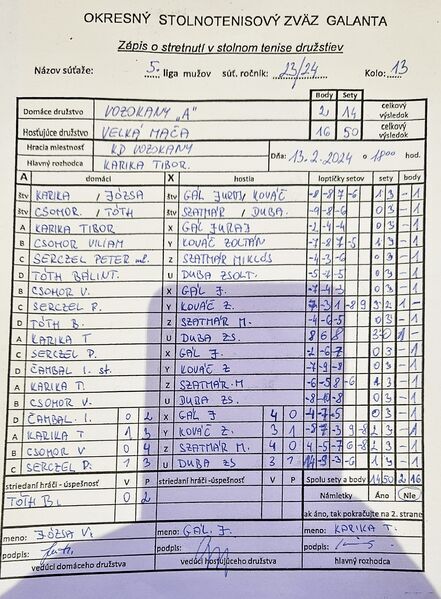 OKRESNÝ STOLNOTENISOVÝ ZVÄZ GALANTA
Zápis o stretnutí v stolnom tenise družstiev
Názov súťaže: 5. liga mužov súť. ročník: 23/24 Kolo: 13
Body Sety
Domáce družstvo VOZOKANY „A" 2 14 celkový výsledok
Hosťujúce družstvo VEĽKÁ MAČA 16 50 celkový výsledok
Hracia miestnosť KD VOZOKANY Dňa: 13.2.2024 o 18 00 hod.
Hlavný rozhodca KARIKA TIBOR
A domáci X hostia loptičky setov sety body
štv KARIKA / JÓZSA štv GÁL JURAJ, KOVÁČ -8-8 7-6 1 3 -1
štv CSOMOR, TÓTH štv SZATMÁR, DUBA -9-8-6 0 3 -1
A KARIKA TIBOR X GÁL JURAJ -2-4-4 0 3 -1
B CSOMOR VILIAM Y KOVÁČ ZOLTÁN -7-8 7-5 1 3 -1
C SERCZEL PETER ml. Z SZATMÁR MIKLÓS -4-3-6 0 3 -1
D TÓTH BÁLINT U DUBA ZSOLT 0 3 -1
B CSOMOR V. X GÁL J. -7-4-3 0 3 -1
C SERCZEL P. Y KOVÁČ Z. 3 2 1 -
D TÓTH B. Z SZATMÁR M. -4-6-5 0 3 -1
A KARIKA T U DUBA ZS. 8 6 8 3 0 1 -
C SERCZEL P. X GÁL J. 0 3 -1
D ČAMBAL I. st. Y KOVÁČ Z -7-9-8 0 3 -1
A KARIKA T. Z SZATMÁR M -6-5 8-6 1 3 -1
B CSOMOR V. U DUBA ZS. -8-10-8 0 3 -1
D ČAMBAL I. 0 2 X GÁL J 4 0 -4-7-5 0 3 -1
A KARIKA T 1 3 Y KOVÁČ Z. 3 1 -8-7 3 9-8 2 3 -1
B CSOMOR V 0 4 Z SZATMÁR M. 4 0 1 3 -1
C SERCZEL P. 1 3 U DUBA ZS 3 1 1 3 -1
striedaní hráči - úspešnosť V P striedaní hráči - úspešnosť V P Spolu sety a body 14 50 2 16
TÓTH B. 0 2 Námietky Áno Nie
ak áno, tak pokračujte na 2. strane
meno: JÓZSA V. meno: GÁL J. meno: KARIKA T.
podpis: podpis: podpis:
vedúci domáceho družstva vedúci hosťujúceho družstva hlavný rozhodca